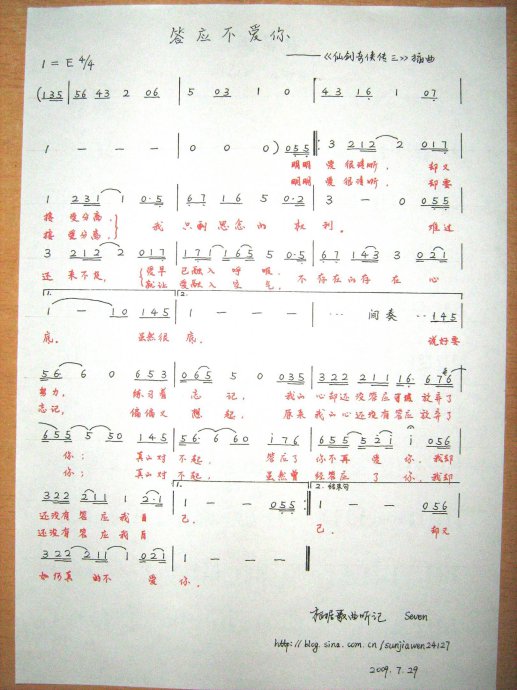 答应不爱你
1=E 4/4
——《仙剑奇侠传三》插曲
(135 | 56 43 2 06 | 5 03 1 0 | 43 16 1 07 |
1 - - - | 0 0 0 ) 055 ‖: 3 212 2 017 |
明明 爱很清晰, 却又
明明 爱很清晰, 却要
1 231 1 0·5 | 67 16 5 0·2 | 3 - 0 055 |
接受分离, 我 只剩思念的 权利。 难过
接受分离,
3 212 2 017 | 171 165 5 0·5 | 67 143 3 021 |
还来不及, 爱早已融入呼吸, 不存在的存在 心
就让爱融入空气,
1. 2.
1 - 10 145 | 1 - - - | ··· 间奏 ·· 145 |
底。 虽然很 底。 说好要
56· 6 0 | 065 5 0 035 | 322 211 16· 676 |
努力, 练习着 忘记, 我的心却还没答应 放弃了
忘记, 偏偏又 想起, 原来我的心还没有答应放弃了
655 5 50 145 | 56· 6 60 176 | 655 52 1 056 |
你; 真的对 不起, 答应了 你不再 爱 你,我却
你; 真的对 不起, 虽然曾 经答应 了 你,我却
1. 2. 结束句
322 211 1 2·1 | 1 - - 056 :‖ 1 - - 056 |
还没有答应我自 己。 己。 却又
还没有答应我自
322 211 1 021 | 1 - - - ‖
如何真的不 爱 你。
根据歌曲听记 Seven
http://blog.sina.com.cn/sunjiawen24127
2009.7.29